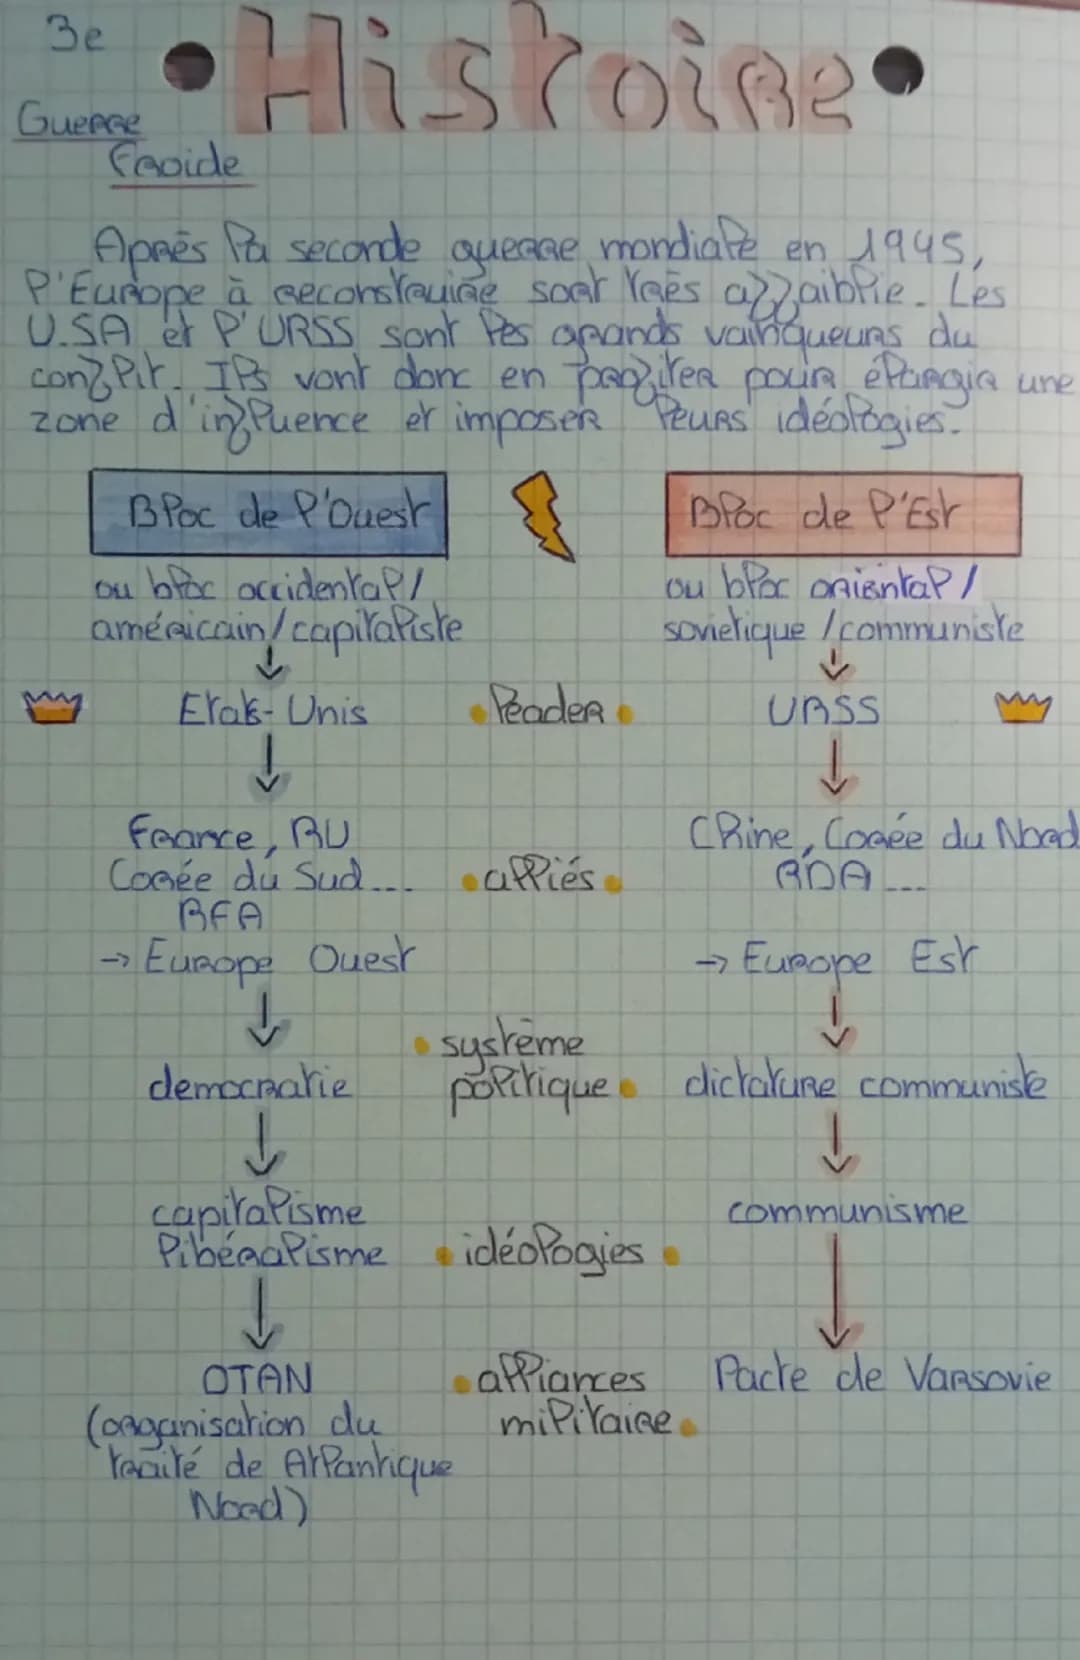 3e
• Histoire •
Guerre
froide
Après la seconde guerre mondiale en 1945,
l'Europe à reconstruire sort très affaiblie. Les
U.SA et l'URSS sont les grands vainqueurs du
conflit. Ils vont donc en profiter pour élargir une
zone d'influence et imposer leurs idéologies.
Bloc de l'Ouest
Bloc de l'Est
ou bloc occidental/
américain/capitaliste
ou bloc oriental/
sovietique /communiste
↓
↓
Etats-Unis
• leader •
URSS
↓
↓
france, RU
Corée du Sud...
RFA
→ Europe Ouest
• alliés •
Chine, Corée du Nord
RDA...
→ Europe Est
↓
↓
democratie
• système
politique •
dictature communiste
↓
↓
capitalisme
libéralisme
• idéologies •
communisme
↓
↓
OTAN
(organisation du
traité de Atlantique
Nord)
• alliances
militaire •
Pacte de Varsovie